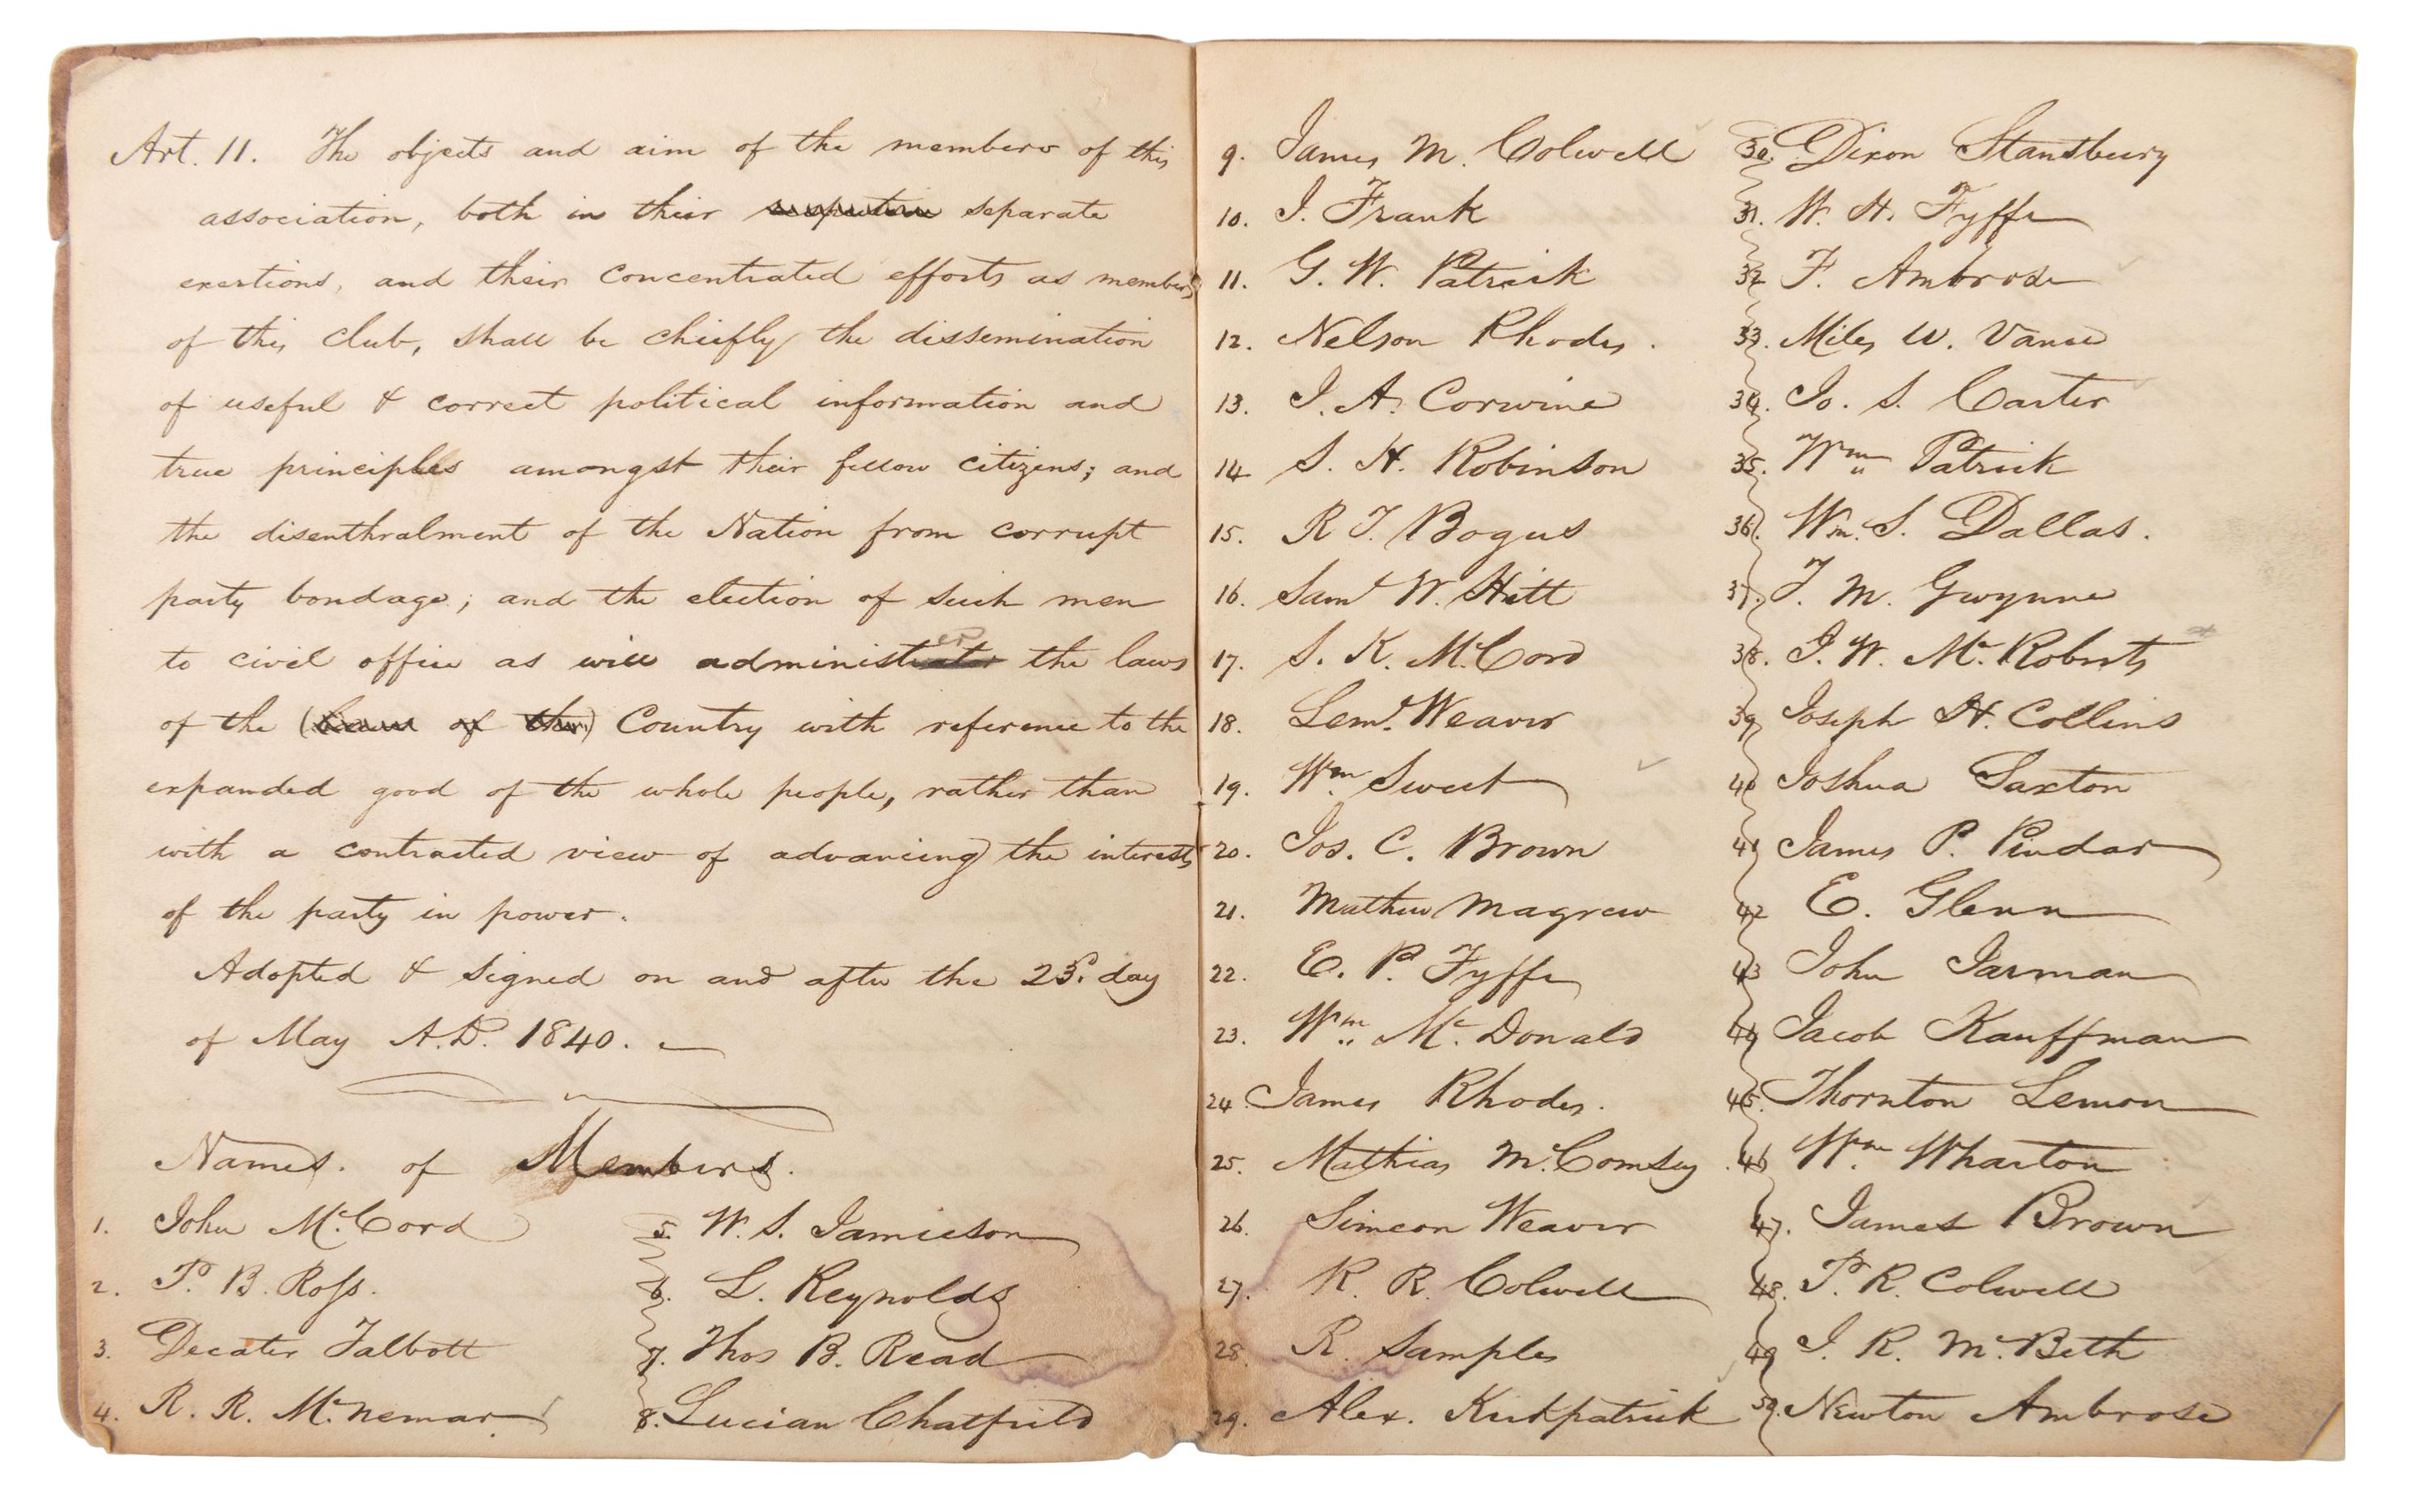 Art. 11. The objects and aim of the members of this
association, both in their separate
exertions, and their concentrated efforts as members
of this club, shall be chiefly the dissemination
of useful & correct political information and
true principles amongst their fellow citizens; and
the disenthralment of the Nation from corrupt
party bondage; and the election of such men
to civil office as will administer the laws
of the Country with reference to the
expanded good of the whole people, rather than
with a contracted view of advancing the interests
of the party in power.
Adopted & signed on and after the 23d. day
of May A.D. 1840.
Names. of Members.
1. John McCord
2. P. B. Ross.
3. Decater Talbott
4. R. R. McNemar
5. W. S. Jamieson
6. L. Reynolds
7. Thos B. Read
8. Lucian Chatfield
9. James M. Colwell
10. J. Frank
11. G. W. Patrick
12. Nelson Rhodes.
13. J. A. Corwine
14. S. H. Robinson
15. R T. Bogus
16. Saml W. Hitt
17. S. K. McCord
18. Leml. Weaver
19. Wm Sweet
20. Jos. C. Brown
21. Mathew Magrew
22. E. P. Fyffe
23. Wm McDonald
24. James Rhodes.
25. Mathias McComsey
26. Simeon Weaver
27. R. R. Colwell
28. R. Samples
29. Alex. Kirkpatrick
30. Dixon Stansbury
31. W. H. Fyffe
32 F. Ambrose
33. Miles W. Vance
34. Jo. S. Carter
35. Wm Patrick
36. Wm. S. Dallas.
37. T. M. Gwynne
38. J. W. McRoberts
39 Joseph H. Collins
40 Joshua Saxton
41 James P. Pindar
42 E. Glenn
43 John Jarman
44 Jacob Kauffman
45. Thornton Lemon
46 Wm Wharton
47. James Brown
48. P. R. Colwell
49 J. R. McBeth
50. Newton Ambrose